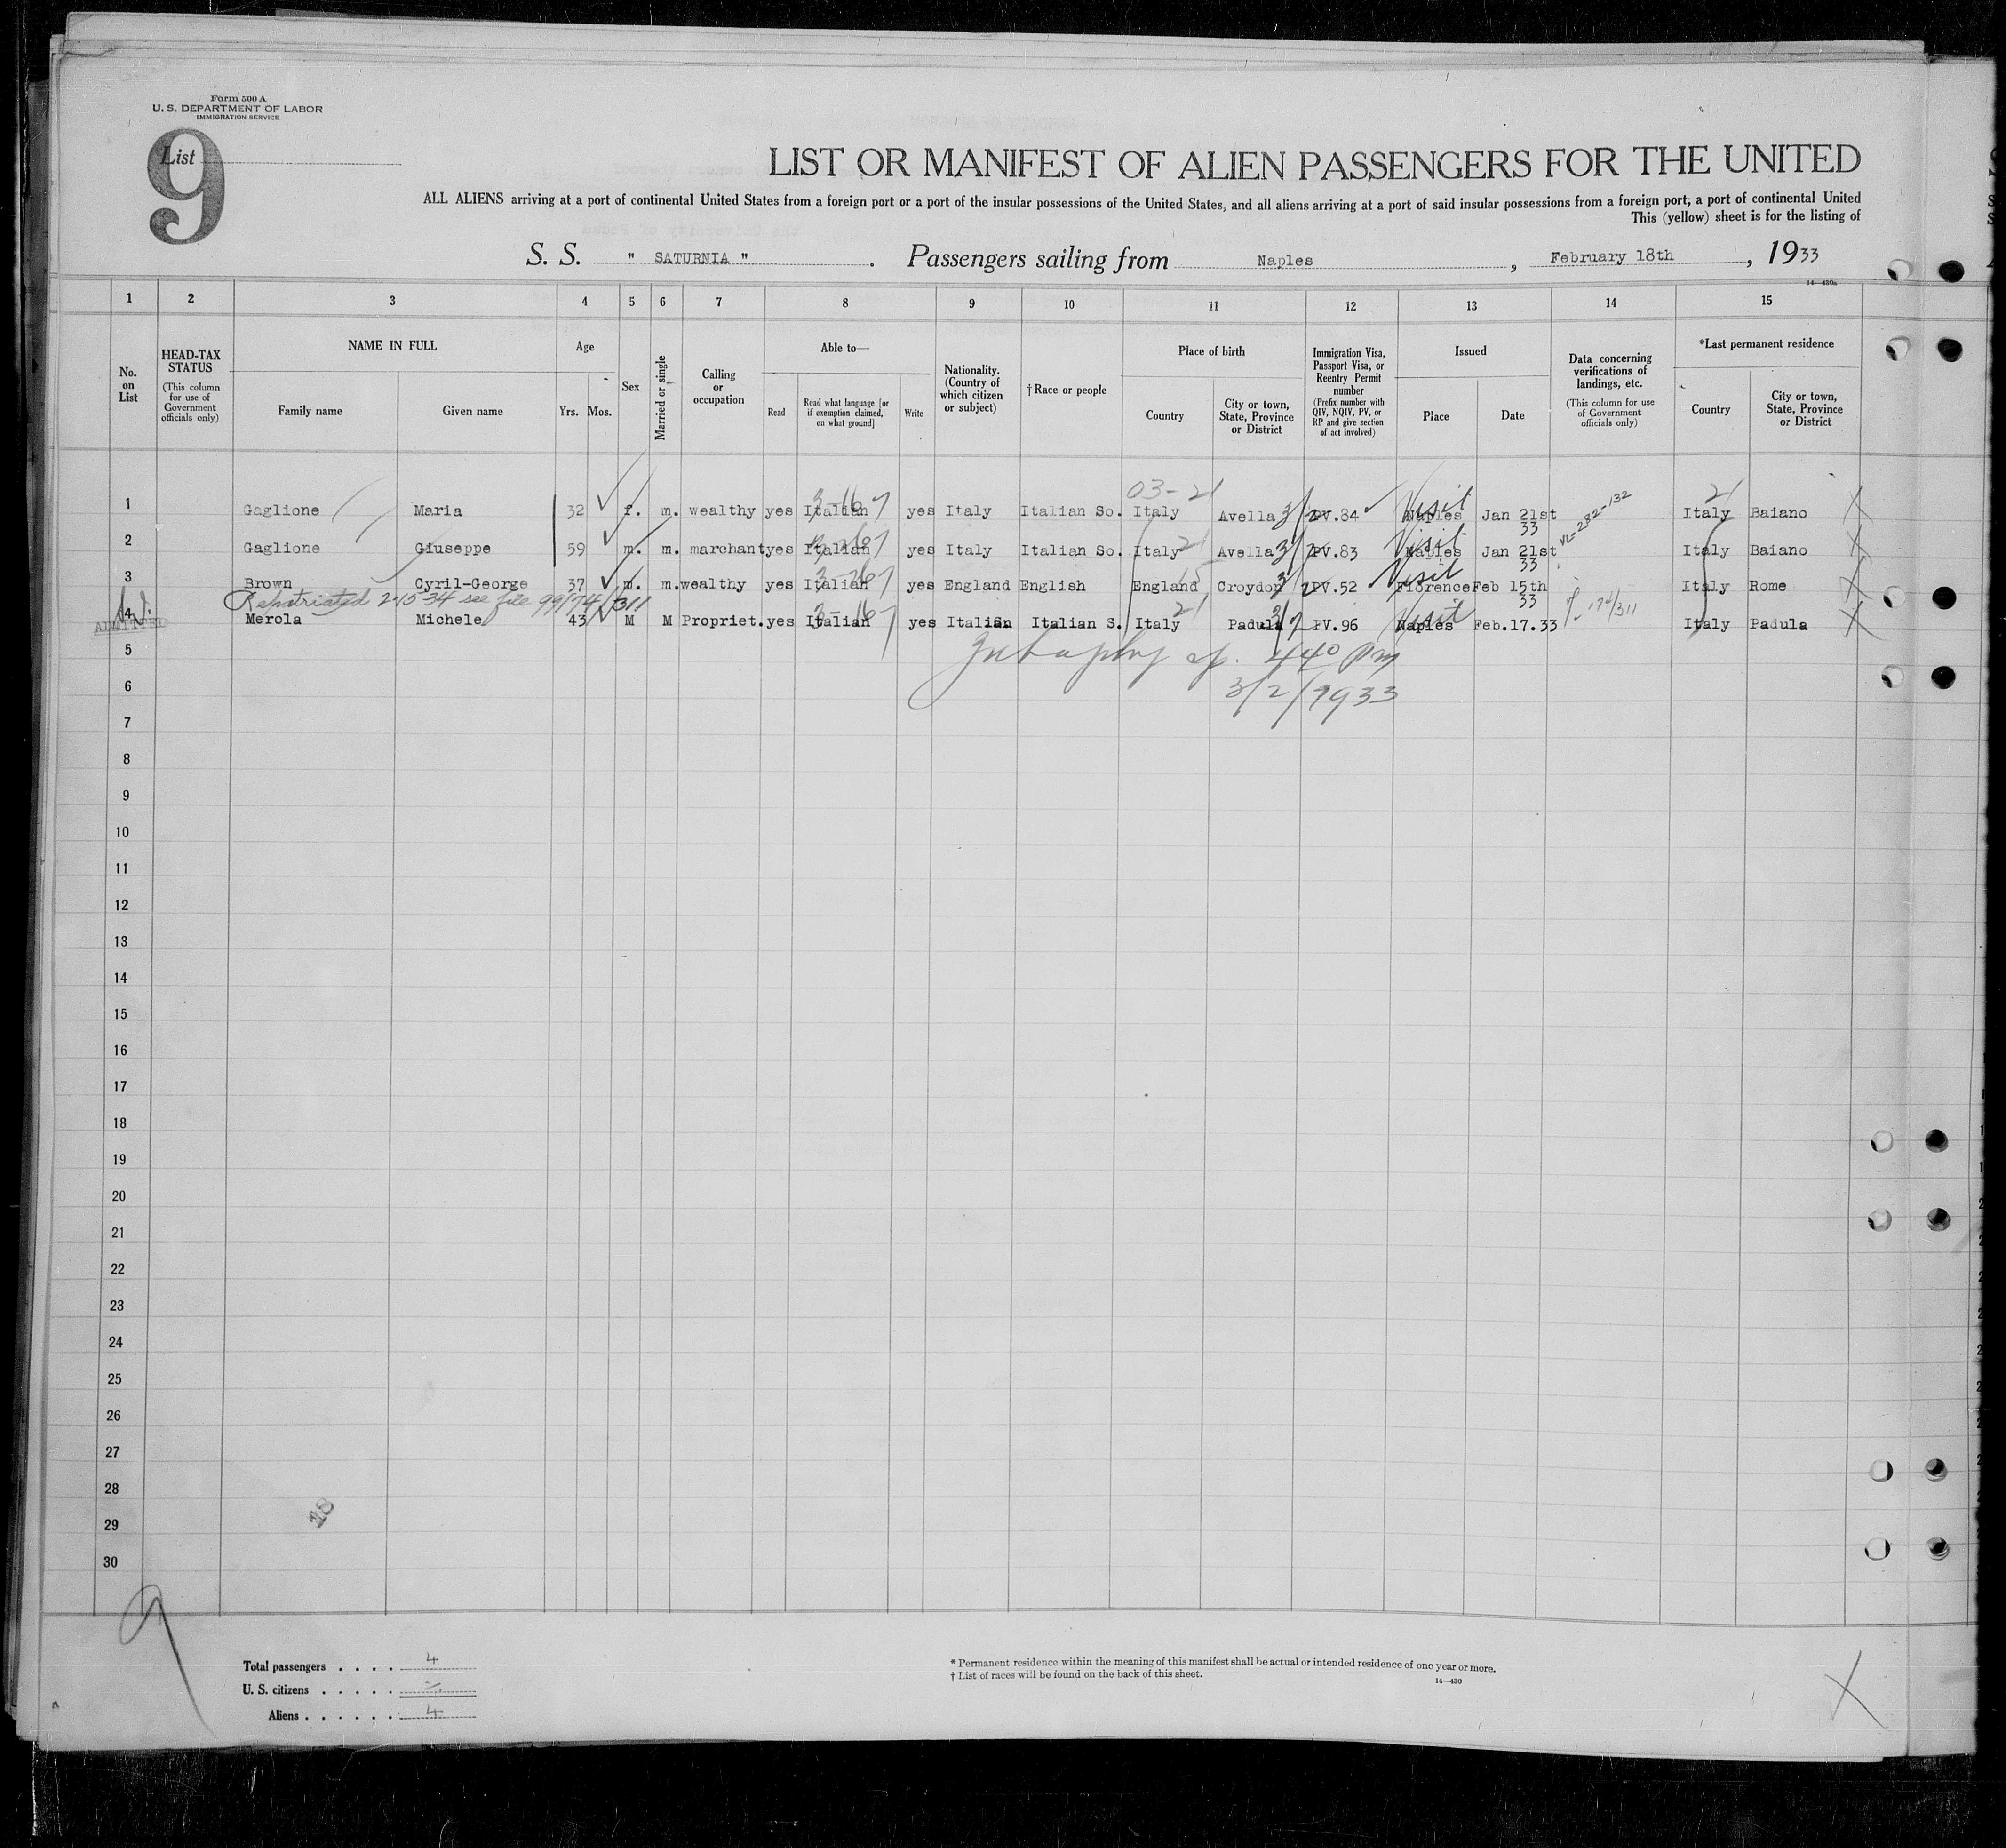 Form 500 A
U. S. DEPARTMENT OF LABOR
IMMIGRATION SERVICE
List
9
LIST OR MANIFEST OF ALIEN PASSENGERS FOR THE UNITED
ALL ALIENS arriving at a port of continental United States from a foreign port or a port of the insular possessions of the United States, and all aliens arriving at a port of said insular possessions from a foreign port, a port of continental United
This (yellow) sheet is for the listing of
S. S. " SATURNIA " . Passengers sailing from Naples , February 18th , 1933
14—430a
1 2 3 4 5 6 7 8 9 10 11 12 13 14 15
No. on List
HEAD-TAX STATUS (This column for use of Government officials only)
NAME IN FULL
Family name Given name
Age
Yrs. Mos.
Sex
Married or single
Calling or occupation
Able to—
Read
Read what language [or if exemption claimed, on what ground]
Write
Nationality. (Country of which citizen or subject)
†Race or people
Place of birth
Country
City or town, State, Province or District
Immigration Visa, Passport Visa, or Reentry Permit number (Prefix number with QIV, NQIV, PV, or RP and give section of act involved)
Issued
Place Date
Data concerning verifications of landings, etc. (This column for use of Government officials only)
*Last permanent residence
Country
City or town, State, Province or District
03-21 21
1 Gaglione Maria 32 f. m. wealthy yes Italian yes Italy Italian So. Italy Avella 3/2 PV.84 Naples Visit Jan 21st 33 VL-282-132 Italy Baiano
2 Gaglione Giuseppe 59 m. m. marchant yes Italian yes Italy Italian So. Italy 21 Avella 3/2 PV.83 Naples Visit Jan 21st 33 Italy Baiano
3 Brown Cyril-George 37 m. m. wealthy yes Italian yes England English England 15 Croydon 3/2 PV.52 Florence Visit Feb 15th 33 Italy Rome
Repatriated 2-15-34 see file 99174/311
ADMITTED
4 Merola Michele 43 M M Propriet. yes Italian yes Italian Italian S. Italy 21 Padula 3/2 PV.96 Naples Visit Feb.17.33 174/311 Italy Padula
5
440 PM
6
3/2/1933
7
8
9
10
11
12
13
14
15
16
17
18
19
20
21
22
23
24
25
26
27
28
29
30
9
Total passengers . . . . 4
U. S. citizens . . . . . -
Aliens . . . . . . 4
* Permanent residence within the meaning of this manifest shall be actual or intended residence of one year or more.
† List of races will be found on the back of this sheet.
14—430